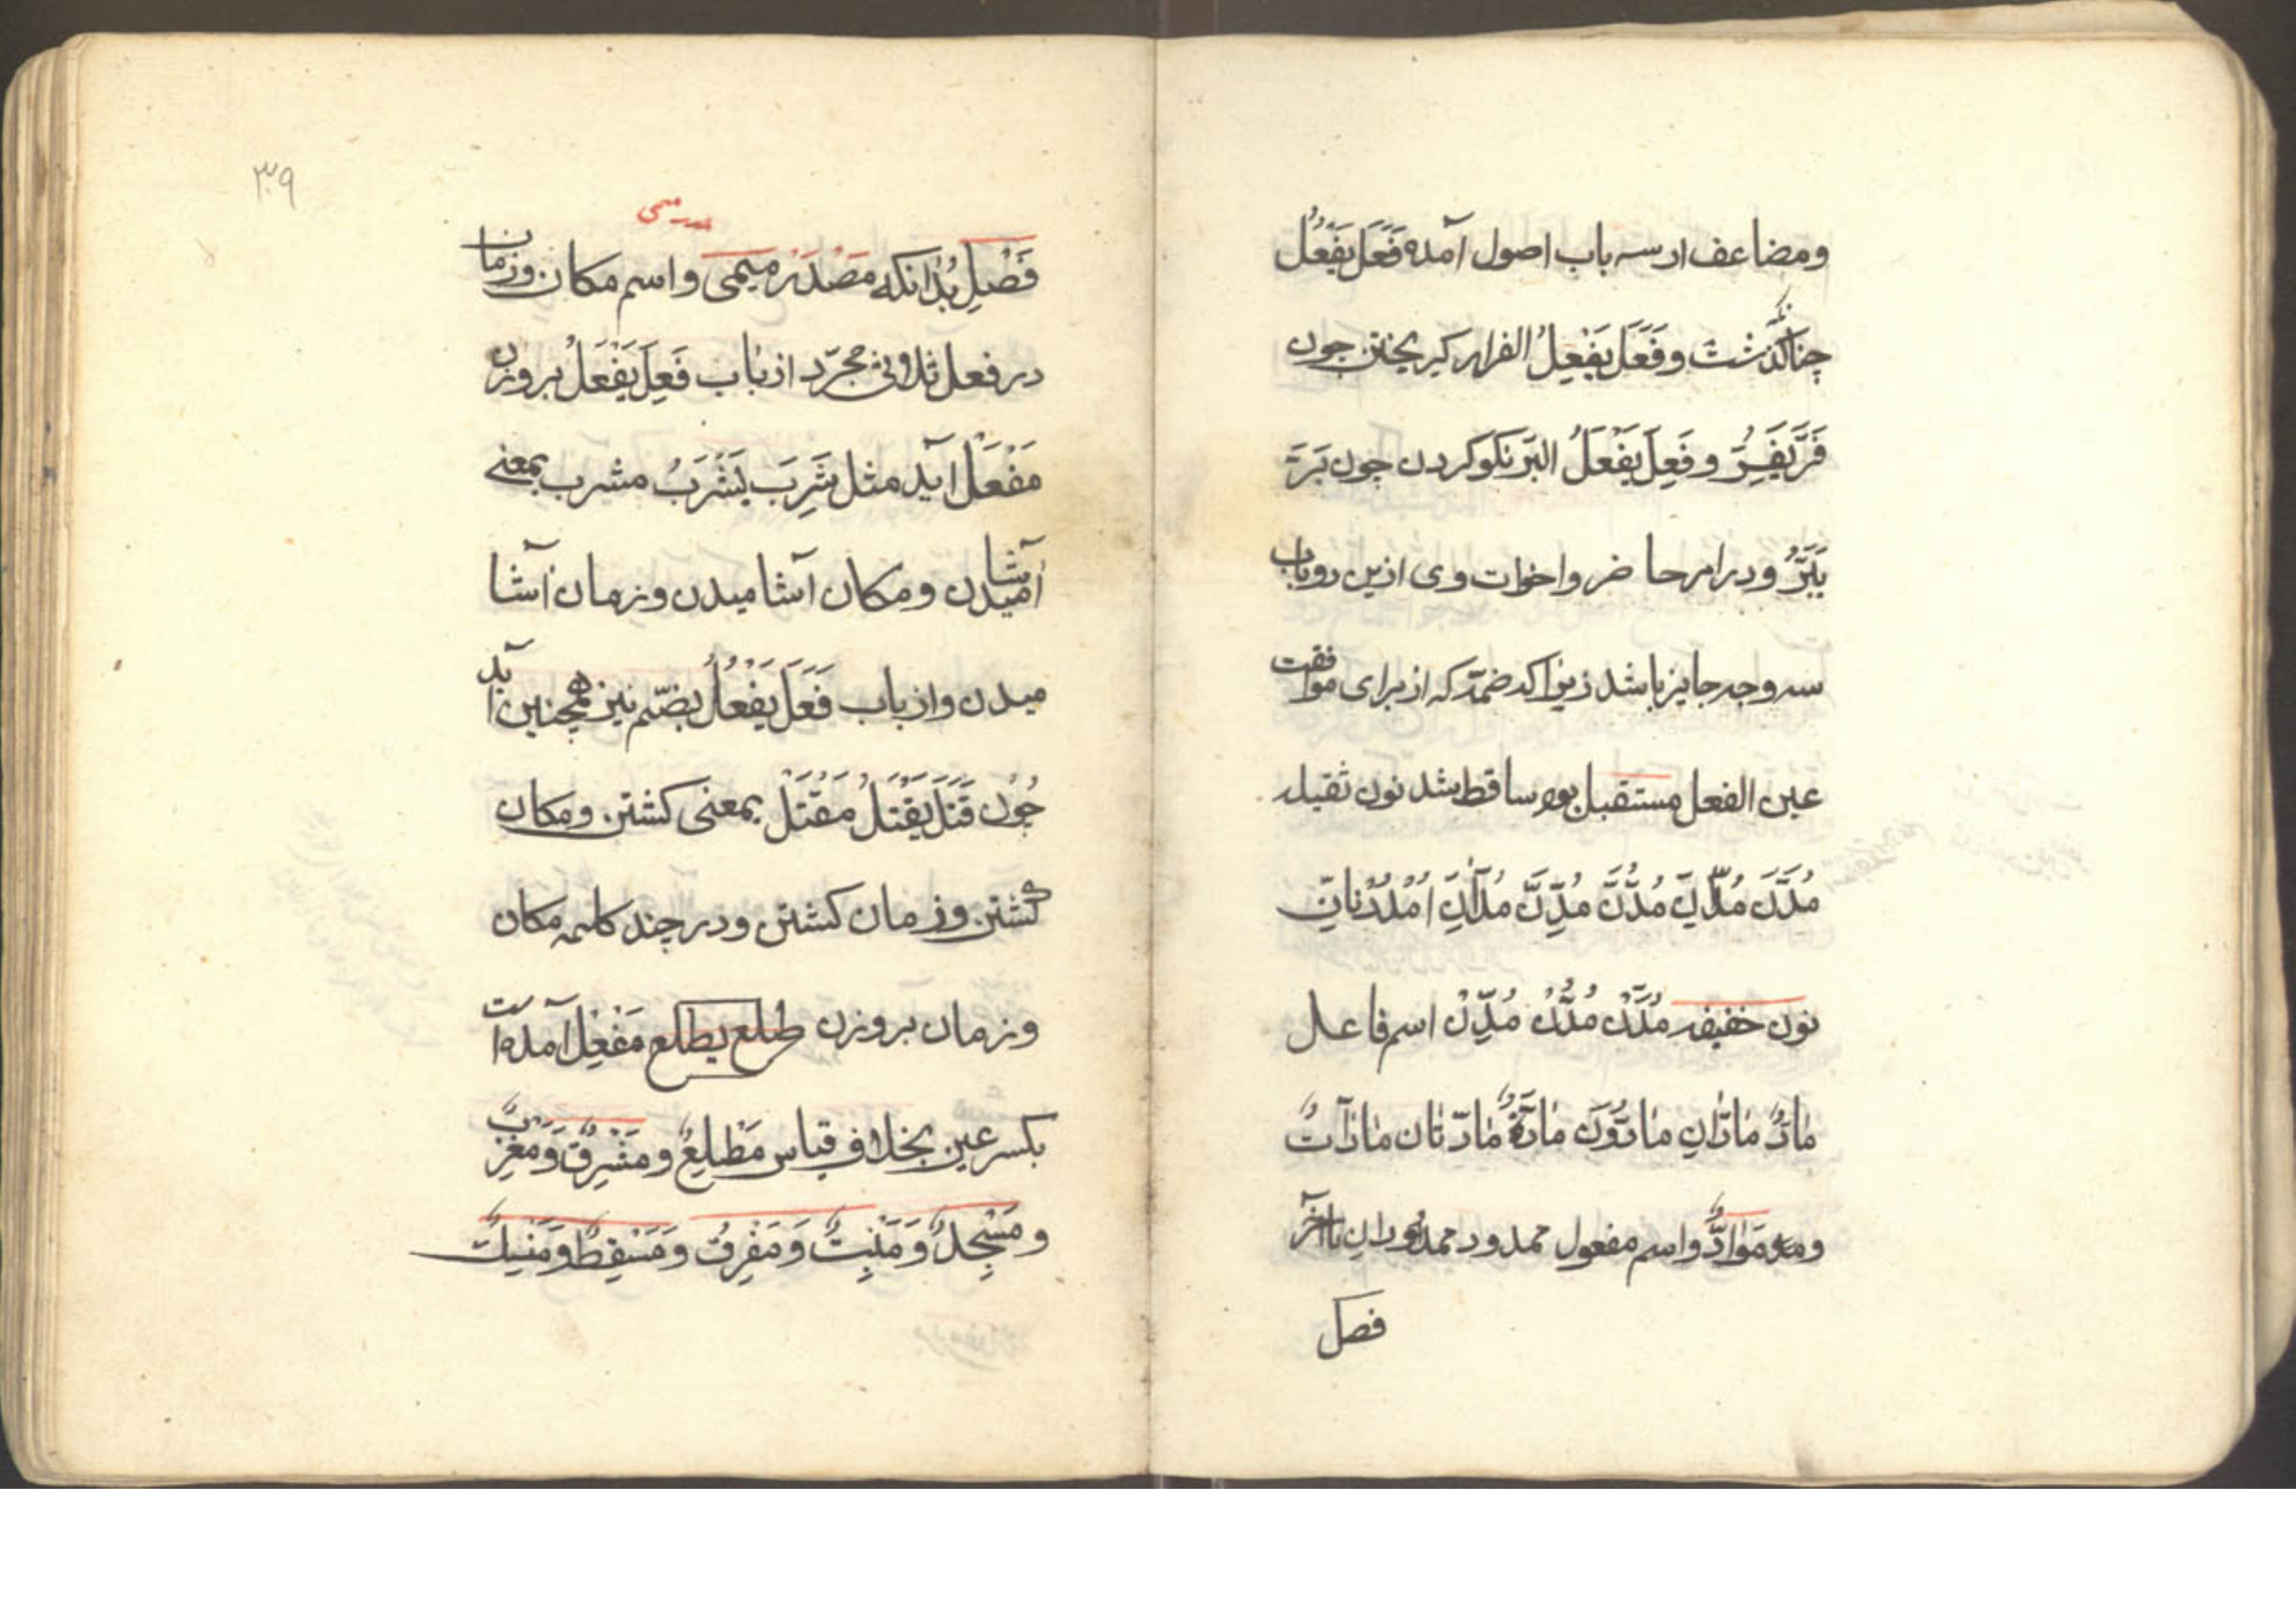 ومضاعف از سه باب اصول آمده فَعَلَ یَفْعُلُ
چنانکه گذشت وفَعَلَ یَفْعِلُ الفرار کریختن چون
فَرَّ یَفِرُّ و فَعِلَ یَفْعَلُ البرّ نکوکردن چون بَرَّ
یَبَرُّ و در امر حاضر واخوات وی ازین دوباب
سه وجه جایز باشد زیرا که ضمّه که از برای موافقت
عین الفعل مستقبل بود ساقط شد نون ثقیله
مُدَّنَّ مُدّانِّ مُدُّنَّ مُدِّنَّ مُدّانِّ اُمْدُدْنانِّ
نون خفیفه مُدَّنْ مُدُّنْ مُدِّنْ اسم فاعل
مٰادٌّ مٰادّٰانِ مٰادُّونَ مٰادَّةٌ مٰادّتٰان مٰادّٰاتٌ
ومَوٰادُّ واسم مفعول ممدود ممدودان تا آخر
فصل
۳۹
فَصْلِ بُدٰانکه مَصْدَر میمی و اسم مکان وزمان
در فعل ثلاثی مجرّد از بٰاب فَعِلَ یَفْعَلُ بروزن
مَفْعَلْ آید مثل شَرِبَ یَشْرَبُ مشرب بمعنے
آشامیدن و مکان آشامیدن وزمان آشا
میدن واز باب فَعَلَ یَفْعُلُ بضمّ نیز همچنین آید
چُون قَتَلَ یَقْتُلُ مَقْتَلْ بمعنی کشتن ومکان
کشتن وزمان کشتن و در چند کلمه مکان
وزمان بروزن طلع یطلع مَفْعِلْ آمده است
بکسر عین بخلاف قیاس مَطْلِعٌ و مَشْرِقٌ وَ مَغْرِبٌ
و مَسْجِدٌ وَ مَنْبِتٌ وَ مَفْرِقٌ وَ مَسْقِطٌ وَ مَنْسِكٌ